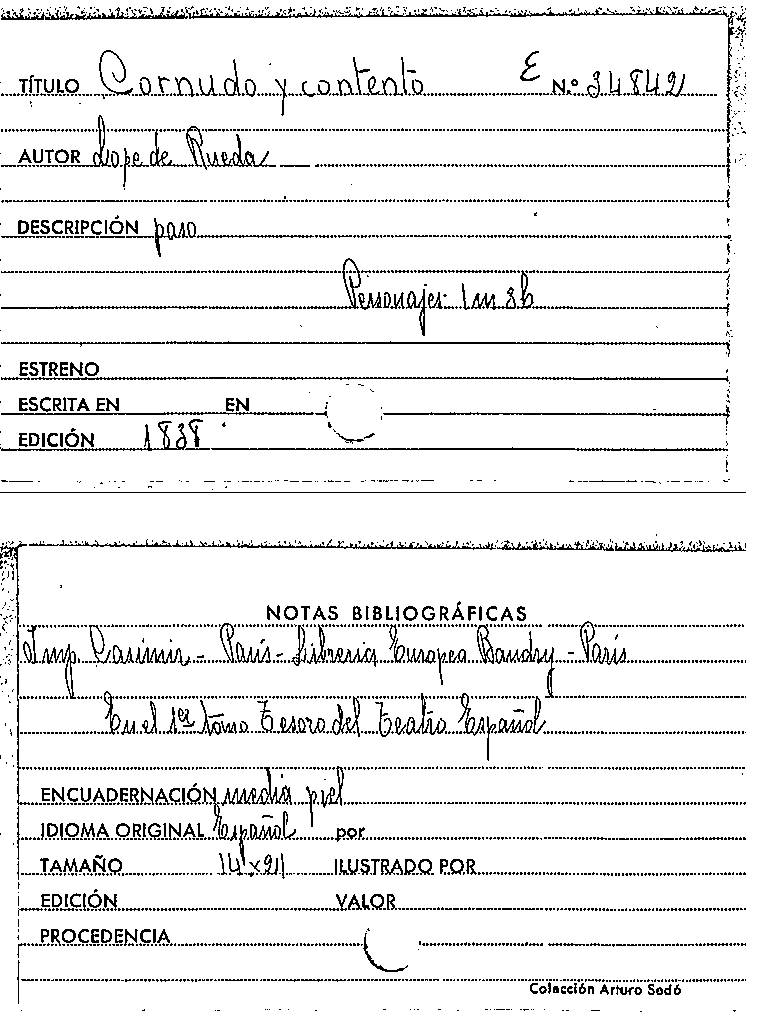 TÍTULO Cornudo y contento E N.º 34842
AUTOR Lope de Rueda
DESCRIPCIÓN paso
Personajes: 1m 3h
ESTRENO
ESCRITA EN EN
EDICIÓN 1838
NOTAS BIBLIOGRÁFICAS
Imp. Casimir - París - Libreria Europea Baudry - París
En el 1er tomo Tesoro del Teatro Español
ENCUADERNACIÓN media piel
IDIOMA ORIGINAL Español por
TAMAÑO 14x21 ILUSTRADO POR
EDICIÓN VALOR
PROCEDENCIA
Colección Arturo Sedó